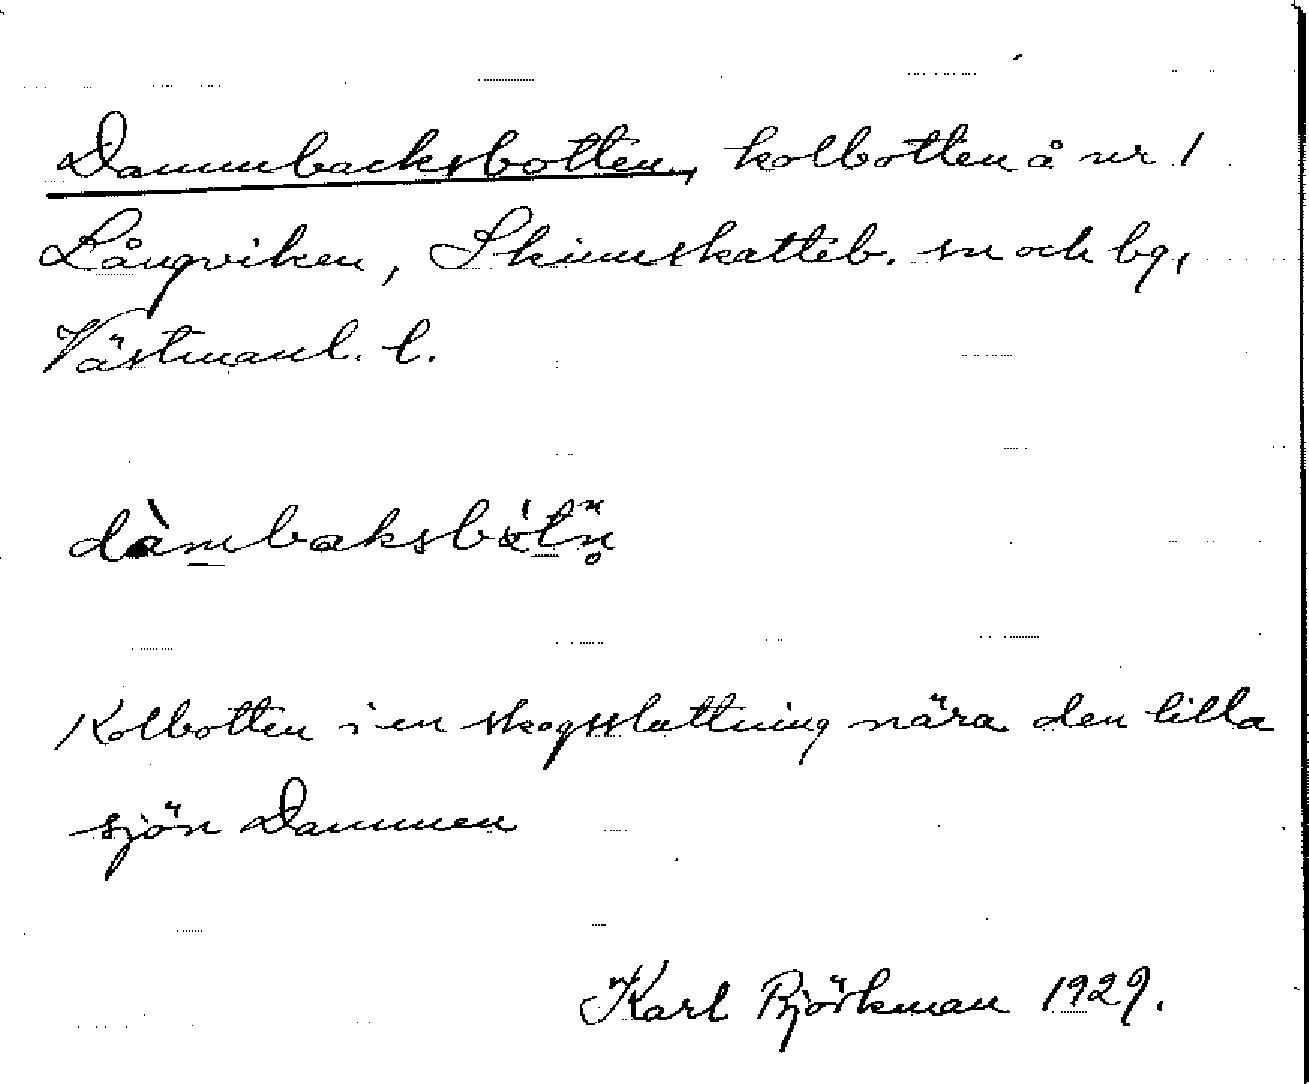 Dammbacksbotten, kolbotten å nr 1
Långviken, Skinnskatteb. sn och bg,
Västmanl. l.
dàmbaksbòtn̥
Kolbotten i en skogssluttning nära den lilla
sjön Dammen
Karl Björkman 1929.